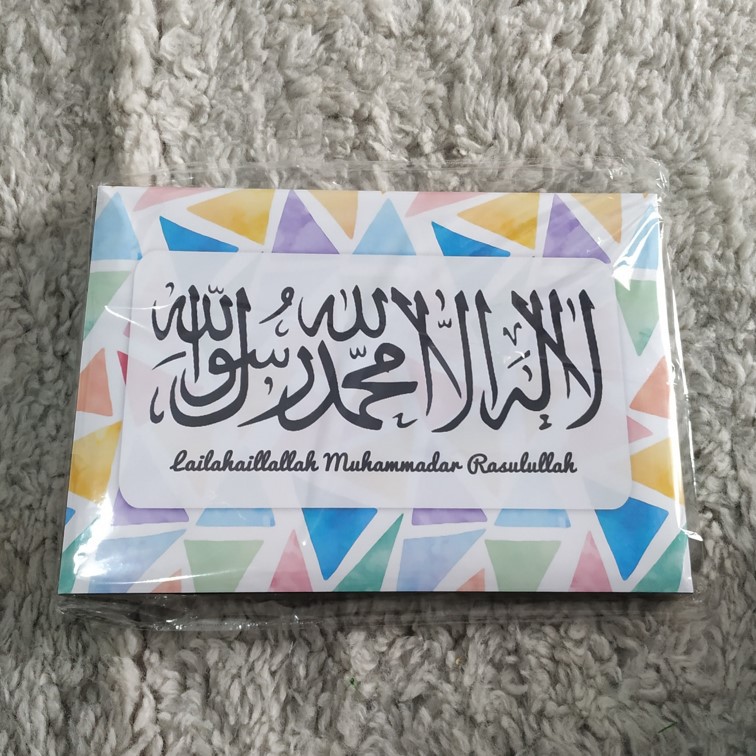 لا إله إلا الله محمد رسول الله
Lailahaillallah Muhammadar Rasulullah